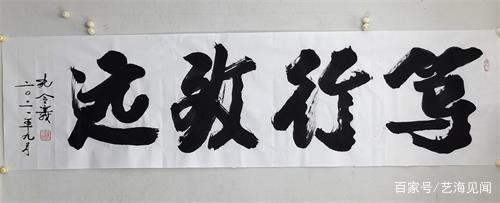 笃行致远
令義
二〇二一年九月
百家号/艺海见闻